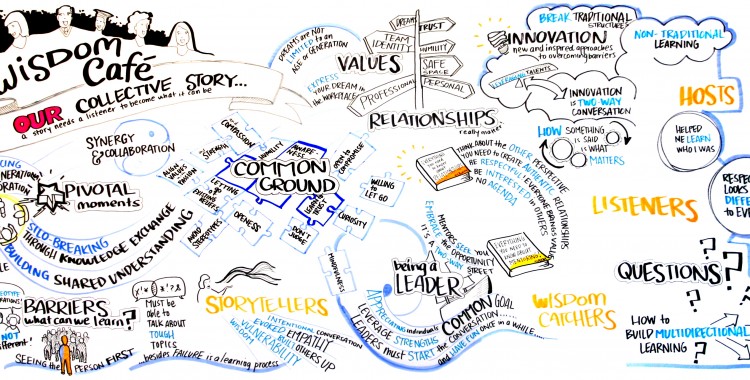 WISDOM
Café
OUR COLLECTIVE STORY...
a story needs a listener to become what it can be
DREAMS ARE NOT
LIMITED to an
AGE or GENERATION
EXPRESS
YOUR DREAM in
the WORKPLACE
VALUES
DREAMS
TRUST
TEAM
IDENTITY
HUMILITY
SAFE
SPACE
PROFESSIONAL
PERSONAL
RELATIONSHIPS
really matter
BREAK TRADITIONAL
STRUCTURES
INNOVATION
new and inspired approaches
to overcoming barriers
LEVERAGING TALENTS
INNOVATION
is TWO-WAY
CONVERSATION
HOW SOMETHING
IS SAID
IS WHAT
MATTERS
NON-TRADITIONAL
LEARNING
HOSTS
HELPED
ME LEARN
WHO I WAS
LISTENERS
RESPECT
LOOKS
DIFFERENT
TO
SYNERGY
& COLLABORATION
PIVOTAL
moments
SILO-BREAKING
THROUGH KNOWLEDGE EXCHANGE
BUILDING SHARED UNDERSTANDING
COMMON
GROUND
COMPASSION
STRENGTH
HUMILITY
AWARE-
NESS
OPEN to
COMPROMISE
ALIGN
VALUES
PASSION
LETTING
GO
EXISTING
AVOID
STEREOTYPES
OPENNESS
DON'T
JUDGE
TRUST
CURIOSITY
WILLING
to LET
GO
MINDFULNESS
THINK ABOUT the OTHER PERSPECTIVE
YOU NEED to CREATE AUTHENTIC RELATIONSHIPS
BE RESPECTFUL EVERYONE BRINGS VALUE
BE INTERESTED in OTHERS
NO AGENDA
MENTORS SEEK YOU
EMBRACE the OPPORTUNITY
IT'S A TWO WAY STREET
being a
LEADER
APPRECIATING individuals
LEVERAGE STRENGTHS
LEADERS must START
COMMON GOAL
CONVERSATION...
the CONVERSATION
and HAVE FUN ONCE in a WHILE....
EVERYTHING
YOU NEED
TO KNOW
ABOUT
MENTORING
WISDOM
CATCHERS
QUESTIONS
HOW to
BUILD MULTIDIRECTIONAL
LEARNING ?
BARRIERS
what can we learn?
NOT
SEEING the PERSON FIRST
MUST BE
able to
TALK ABOUT
TOUGH
TOPICS
...besides FAILURE is a learning process
STORYTELLERS
INTENTIONAL CONVERSATION
EVOKED EMPATHY
WISDOM BUILT OTHERS UP
VULNERABILITY